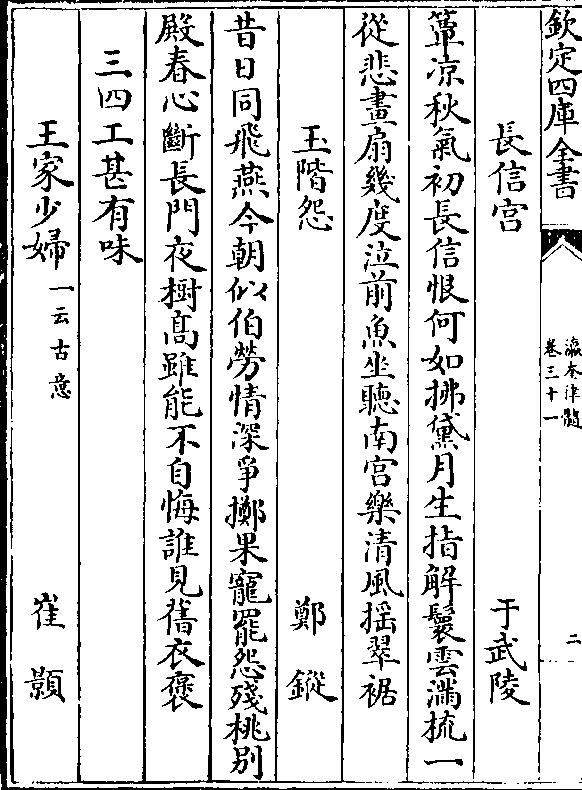 欽定四庫全書
瀛奎律髓
卷三十一
二
長信宫 于武陵
簟凉秋氣初長信恨何如拂黛月生指解鬟雲滿梳一
從悲畫扇幾度泣前魚坐聽南宫樂清風揺翠裾
玉階怨 鄭鏦
昔日同飛燕今朝似伯勞情深爭擲果寵罷怨殘桃别
殿春心斷長門夜樹髙雖能不自悔誰見舊衣褒
三四工甚有味
王家少婦一云古意 崔顥